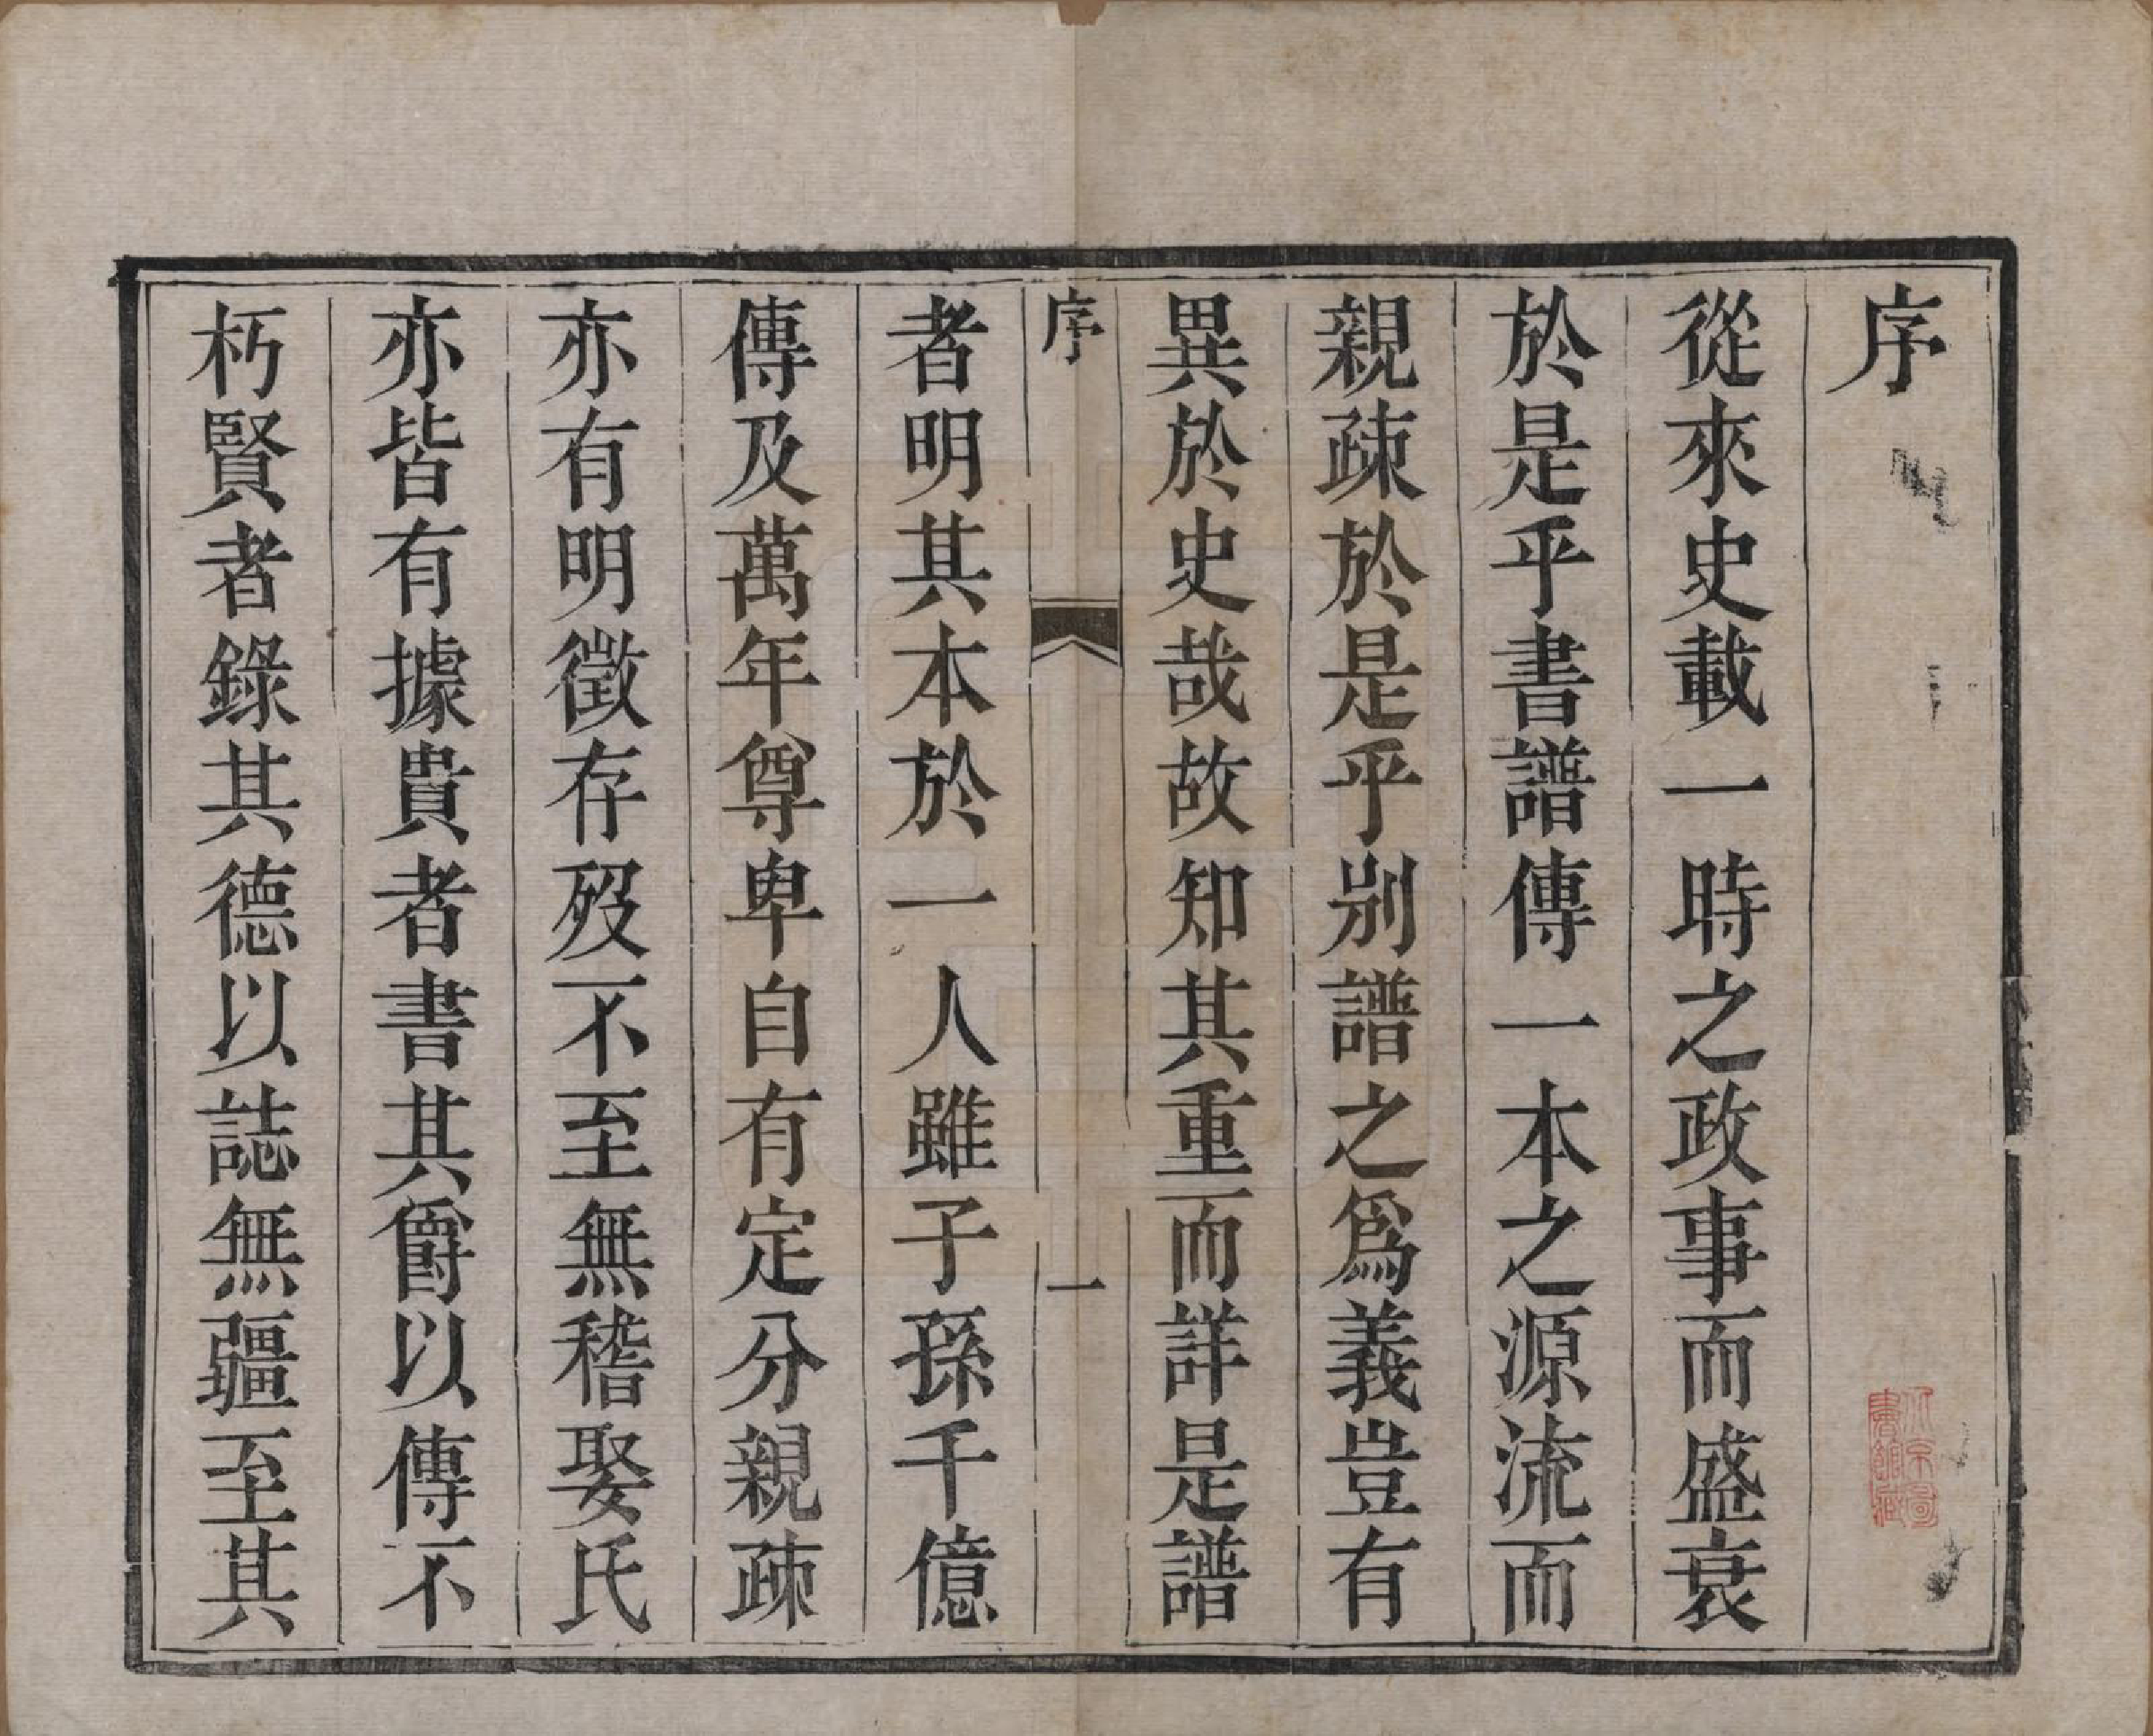 序
從來史載一時之政事而盛衰
於是乎書譜傳一本之源流而
親疎於是乎別譜之爲義豈有
異於史哉故知其重而詳是譜
序 一
者明其本於一人雖子孫千億
傳及萬年尊卑自有定分親疎
亦有明徵存歿不至無稽娶氏
亦皆有據貴者書其爵以傳不
朽賢者錄其德以誌無疆至其